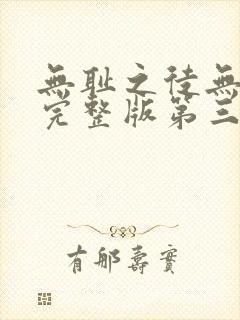 無耻之徒無
完整版第三
有那壽實